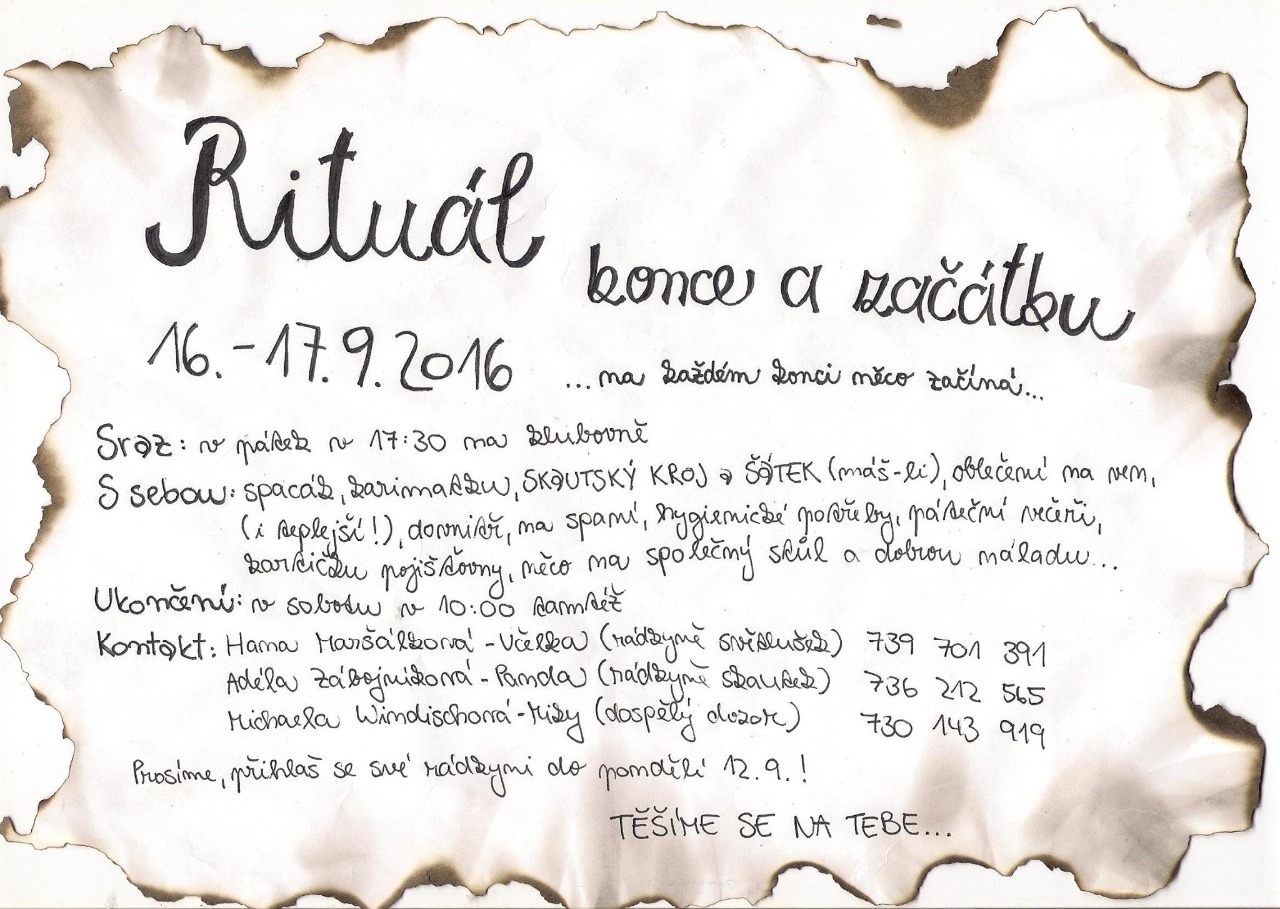 Rituál
konce a začátku
16.-17.9.2016
...na každém konci něco začíná...
Sraz: v pátek v 17:30 na klubovně
S sebou: spacák, karimatku, SKAUTSKÝ KROJ a ŠÁTEK (máš-li), oblečení na ven,
(i teplejší!), dovnitř, na spaní, hygienické potřeby, páteční večeři,
kartičku pojišťovny, něco na společný stůl a dobrou náladu...
Ukončení: v sobotu v 10:00 tamtéž
Kontakt: Hana Maršálková - Včelka (rádkyně světlušek) 739 701 391
Adéla Zábojníková - Panda (rádkyně skautek) 736 212 565
Michaela Windischová - Mizy (dospělý dozor) 730 143 919
Prosíme, přihlaš se své rádkyni do pondělí 12.9.!
TĚŠÍME SE NA TEBE...